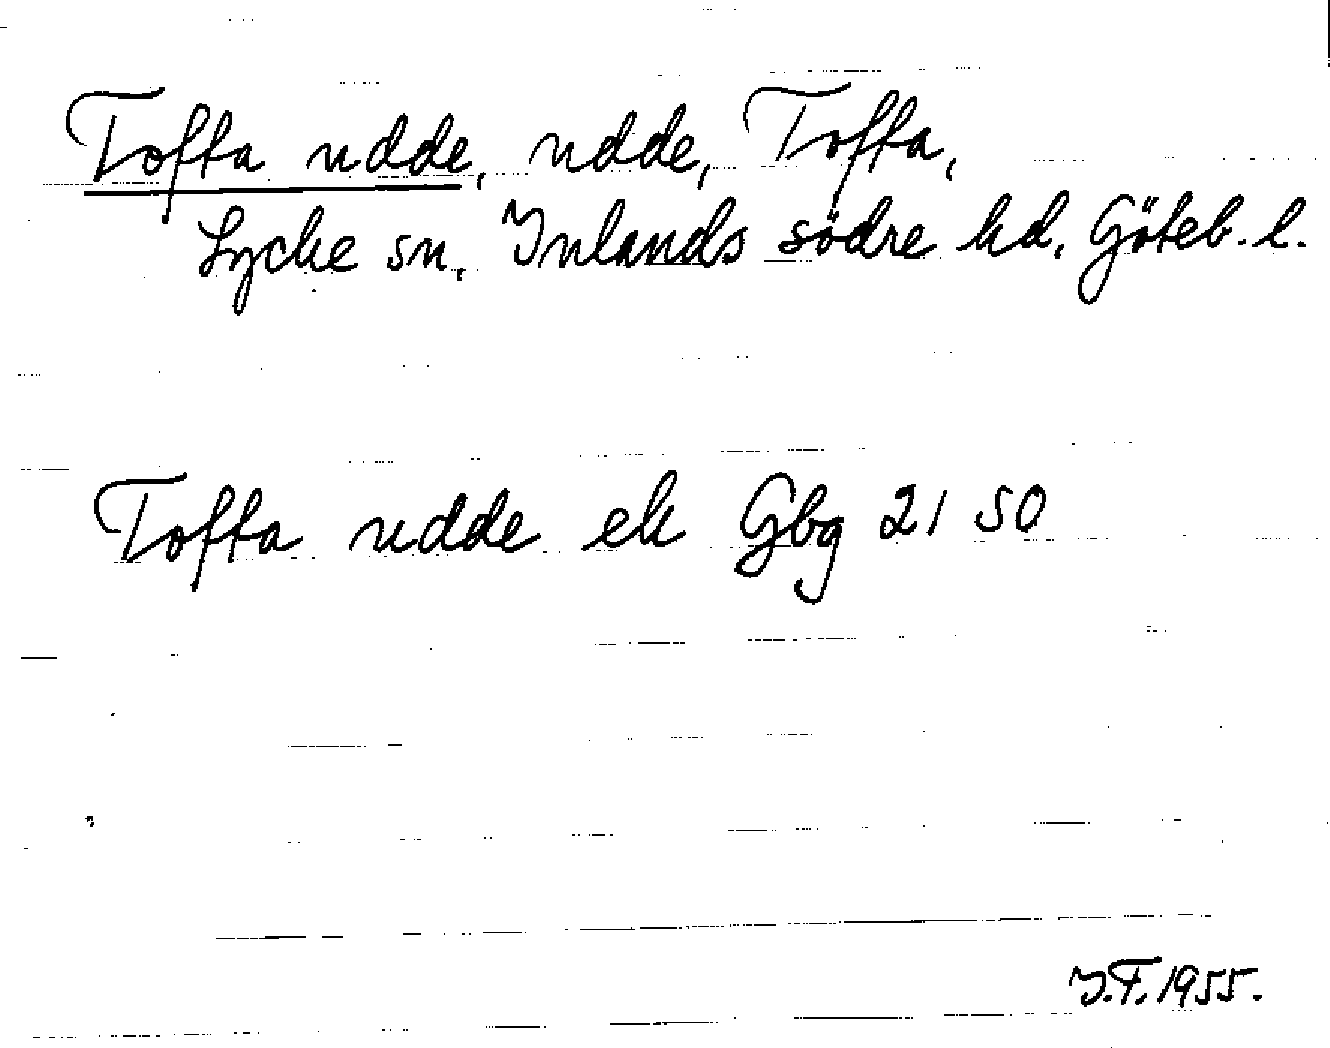 Tofta udde, udde, Tofta,
Lycke sn, Inlands södre hd, Göteb. l.
Tofta udde ek Gbg 21 50
I.F. 1955.